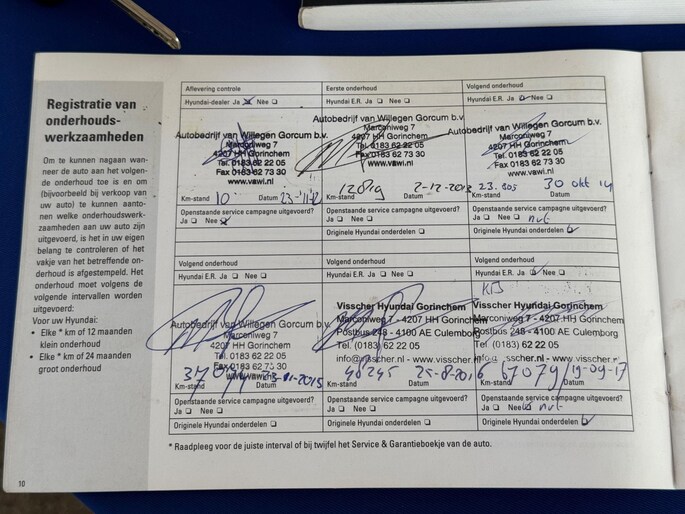 Registratie van
onderhouds-
werkzaamheden
Om te kunnen nagaan wan-
neer de auto aan het volgen-
de onderhoud toe is en om
(bijvoorbeeld bij verkoop van
uw auto) te kunnen aanto-
nen welke onderhoudswerk-
zaamheden aan uw auto zijn
uitgevoerd, is het in uw eigen
belang te controleren of het
vakje van het betreffende on-
derhoud is afgestempeld. Het
onderhoud moet volgens de
volgende intervallen worden
uitgevoerd:
Voor uw Hyundai:
• Elke * km of 12 maanden
klein onderhoud
• Elke * km of 24 maanden
groot onderhoud
Aflevering controle
Hyundai-dealer Ja Nee
Autobedrijf van Willegen Gorcum b.v.
Marconiweg 7
4207 HH Gorinchem
Tel. 0183 62 22 05
Fax 0183 62 73 30
www.vawi.nl
Km-stand 10 Datum 23-11-12
Openstaande service campagne uitgevoerd?
Ja Nee
Eerste onderhoud
Hyundai E.R. Ja Nee
Autobedrijf van Willegen Gorcum b.v.
Marconiweg 7
4207 HH Gorinchem
Tel. 0183 62 22 05
Fax 0183 62 73 30
www.vawi.nl
Km-stand 12819 Datum 2-12-2013
Openstaande service campagne uitgevoerd?
Ja Nee
Originele Hyundai onderdelen
Volgend onderhoud
Hyundai E.R. Ja Nee
Autobedrijf van Willegen Gorcum b.v.
Marconiweg 7
4207 HH Gorinchem
Tel. 0183 62 22 05
Fax 0183 62 73 30
www.vawi.nl
Km-stand Datum 30 okt 14
Openstaande service campagne uitgevoerd?
Ja Nee nvt
Originele Hyundai onderdelen
Volgend onderhoud
Hyundai E.R. Ja Nee
Autobedrijf van Willegen Gorcum b.v.
Marconiweg 7
4207 HH Gorinchem
Tel. 0183 62 22 05
Fax 0183 62 73 30
www.vawi.nl
Km-stand Datum
Openstaande service campagne uitgevoerd?
Ja Nee
Originele Hyundai onderdelen
Volgend onderhoud
Hyundai E.R. Ja Nee
Visscher Hyundai Gorinchem
Marconiweg 7 - 4207 HH Gorinchem
Postbus 248 - 4100 AE Culemborg
Tel. (0183) 62 22 05
info@visscher.nl - www.visscher.nl
Km-stand 48245 Datum 25-8-2016
Openstaande service campagne uitgevoerd?
Ja Nee
Originele Hyundai onderdelen
Volgend onderhoud
Hyundai E.R. Ja Nee
Visscher Hyundai Gorinchem
Marconiweg 7 - 4207 HH Gorinchem
Postbus 248 - 4100 AE Culemborg
Tel. (0183) 62 22 05
www.visscher.nl
Km-stand 67079 Datum 19-09-17
Openstaande service campagne uitgevoerd?
Ja Nee nvt
Originele Hyundai onderdelen
* Raadpleeg voor de juiste interval of bij twijfel het Service & Garantieboekje van de auto.
10